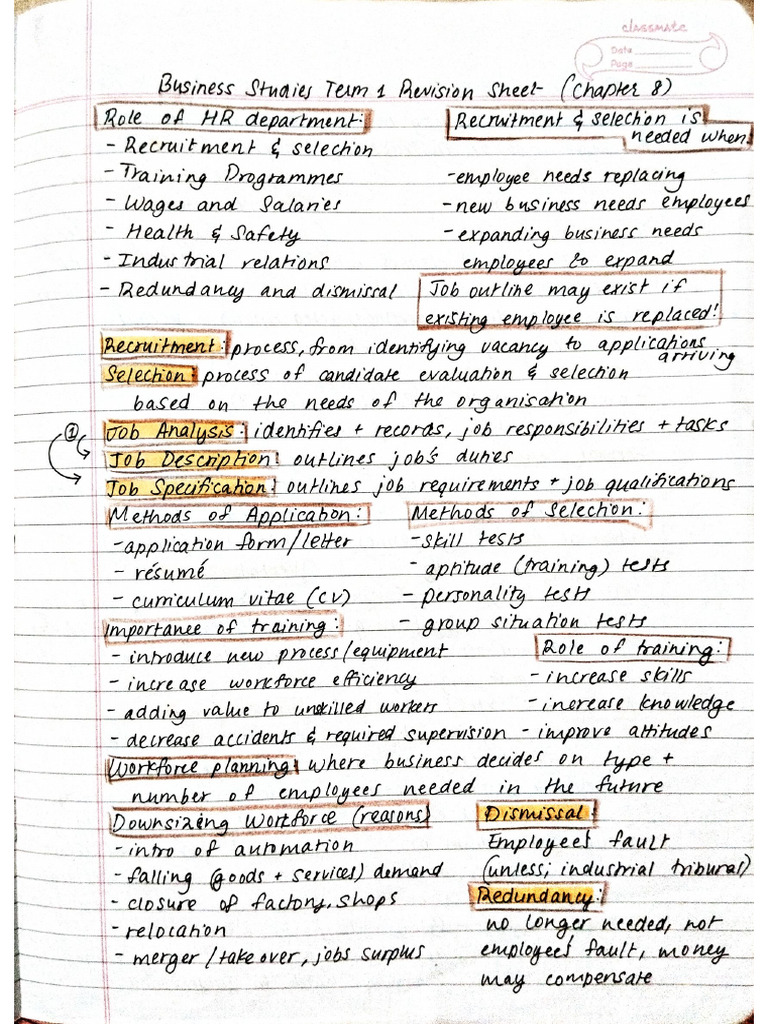 classmate
Date
Page
Business Studies Term 1 Revision Sheet (Chapter 8)
Role of HR department:
- Recruitment & selection
- Training Programmes
- Wages and Salaries
- Health & Safety
- Industrial relations
- Redundancy and dismissal
Recruitment & selection is
needed when
- employee needs replacing
- new business needs employees
- expanding business needs
employees to expand
Job outline may exist if
existing employee is replaced!
Recruitment: process, from identifying vacancy to applications
arriving
Selection: process of candidate evaluation & selection
based on the needs of the organisation
① Job Analysis: identifies + records, job responsibilities + tasks
Job Description: outlines job's duties
Job Specification: outlines job requirements + job qualifications
Methods of Application:
- application form/letter
- résumé
- curriculum vitae (CV)
Methods of Selection:
- skill tests
- aptitude (training) tests
- personality tests
- group situation tests
Importance of training:
- introduce new process/equipment
- increase workforce efficiency
- adding value to unskilled workers
- decrease accidents & required supervision
Role of training:
- increase skills
- increase knowledge
- improve attitudes
Workforce planning: where business decides on type +
number of employees needed in the future
Downsizing Workforce (reasons)
- intro of automation
- falling (goods + services) demand
- closure of factory, shops
- relocation
- merger/take over, jobs surplus
Dismissal:
Employee's fault
(unless; industrial tribunal)
Redundancy:
no longer needed, not
employees' fault, money
may compensate